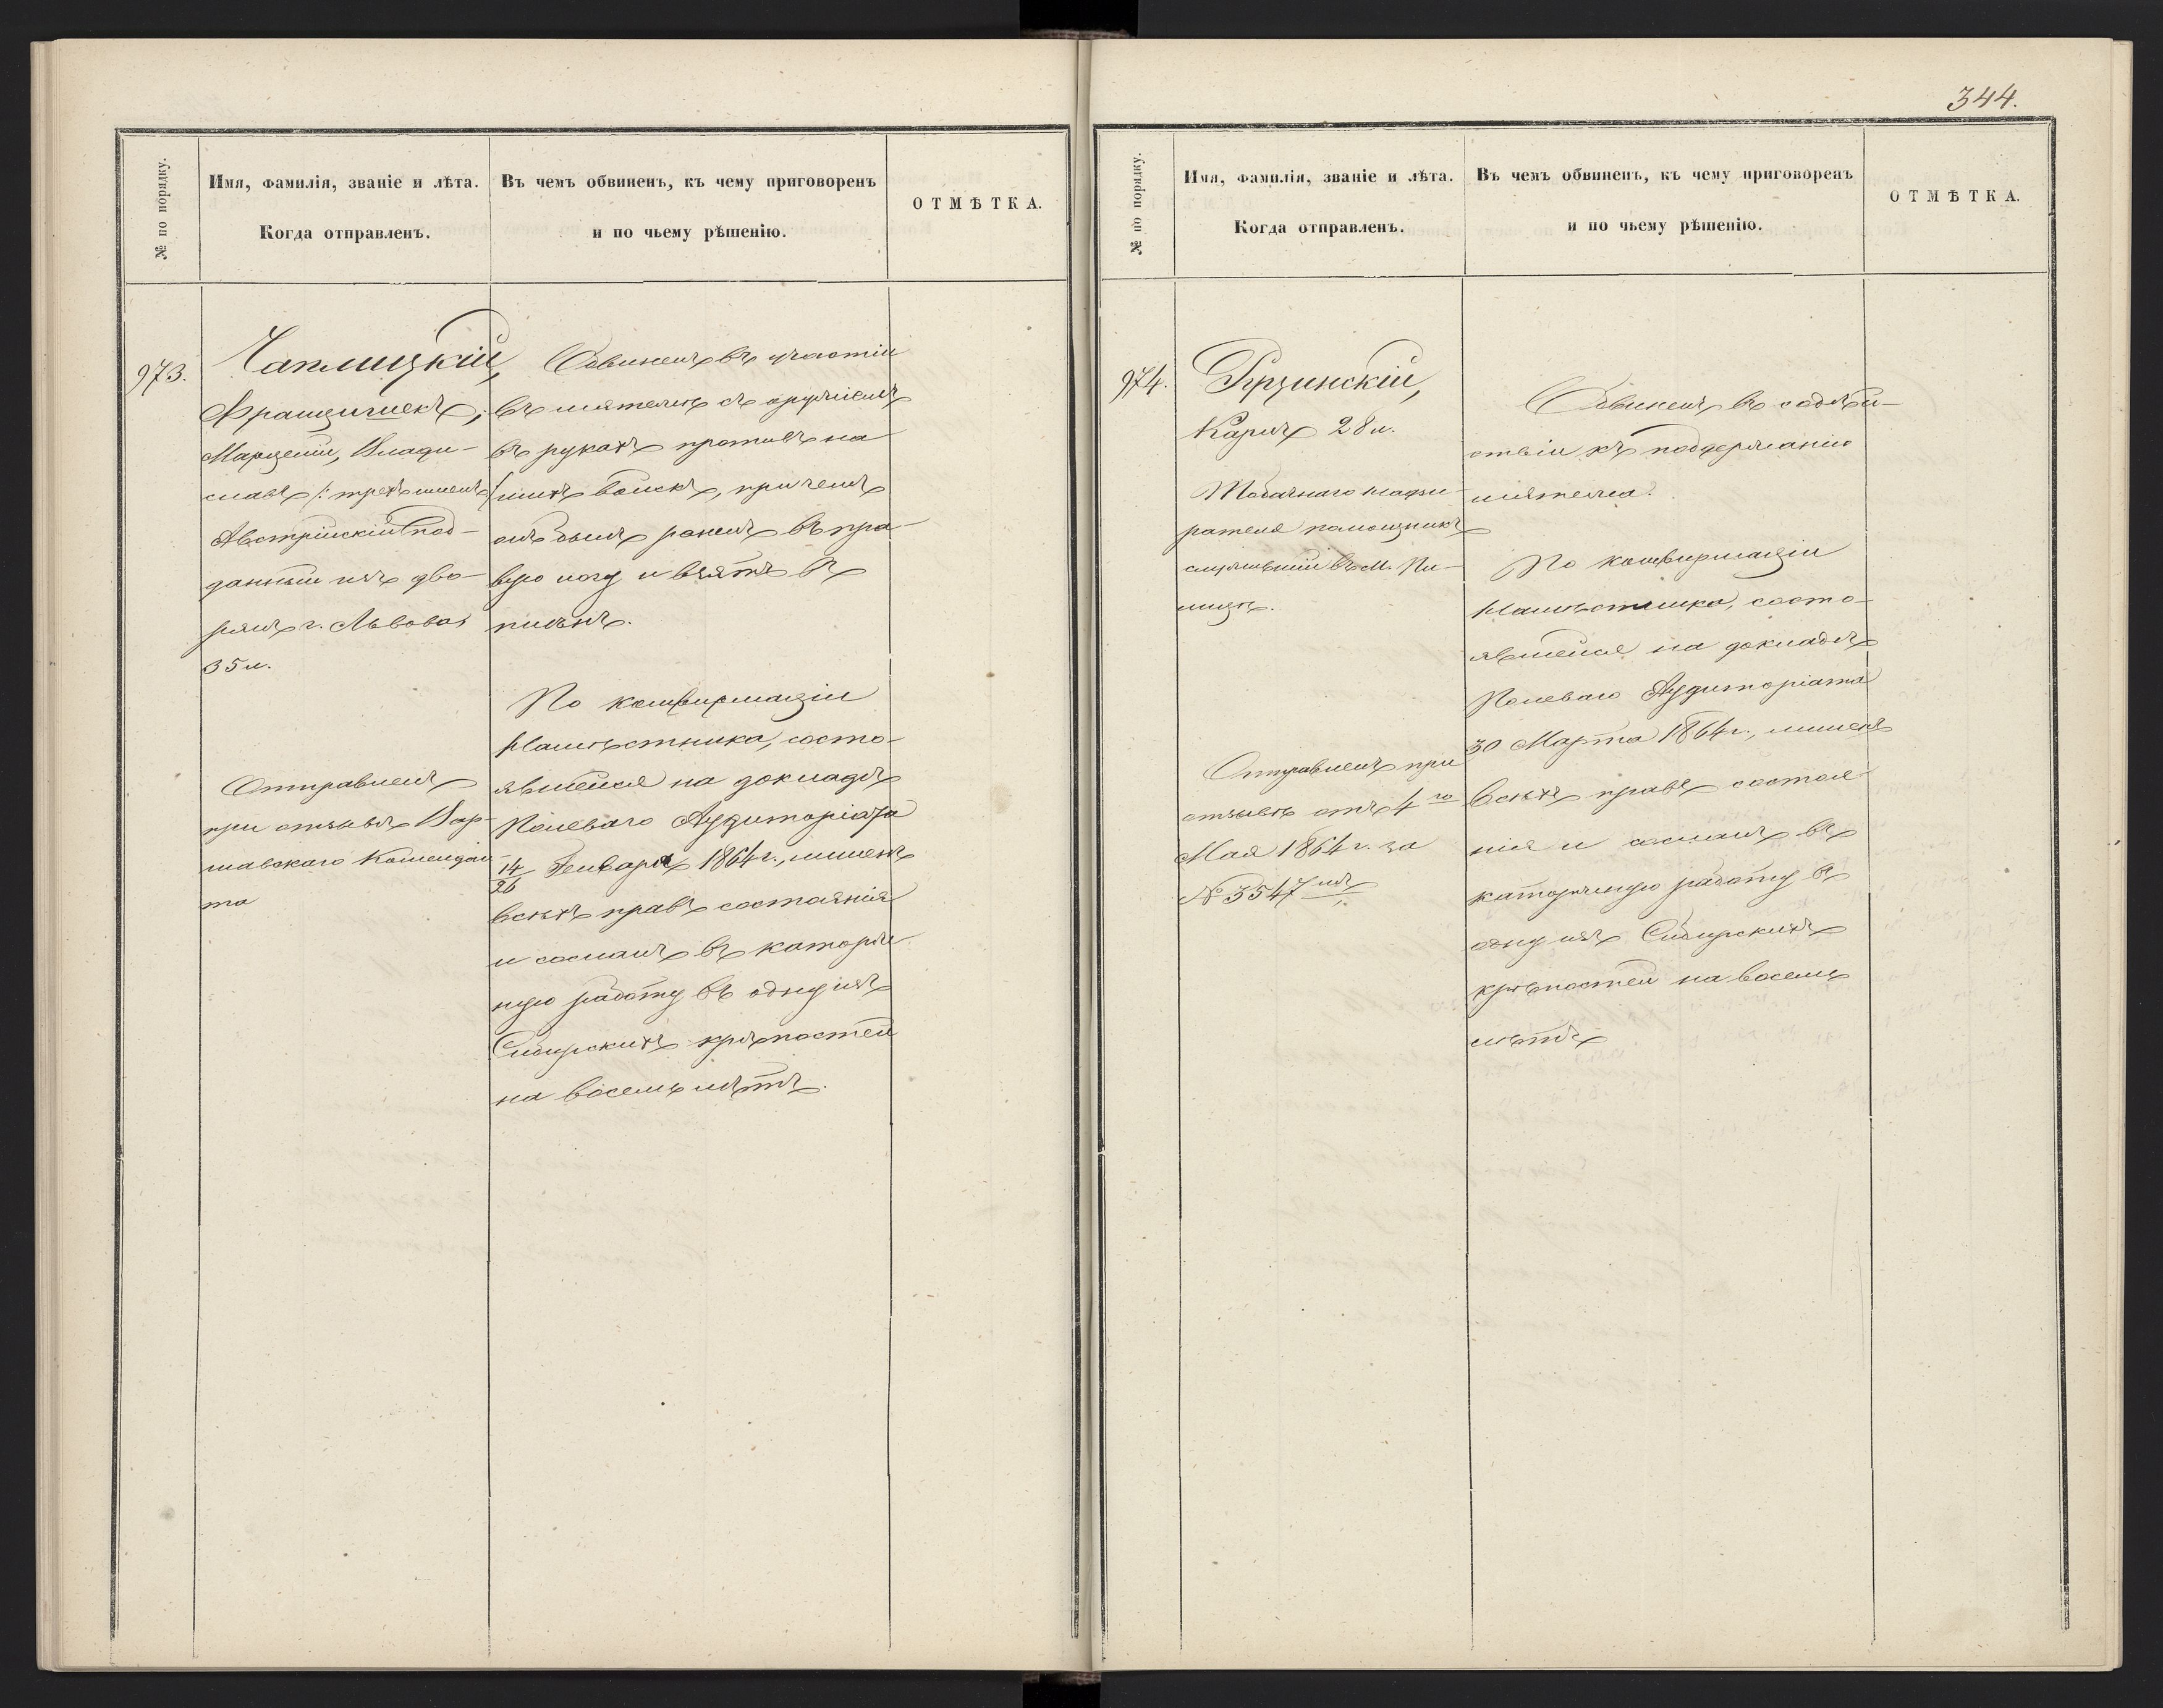 № по порядку.
Имя, фамилія, званіе и лѣта.
Когда отправленъ.
Въ чемъ обвиненъ, къ чему приговоренъ
и по чьему рѣшенію.
ОТМѢТКА.
973.
Чаплицкій,
Францишекъ,
Марцелій, Влади-
славъ /: трехъименъ
Австрійскій под-
данный изъ дво-
рянъ г. Львова
35 л.
Отправленъ
при отзывѣ Вар-
шавскаго Комендан-
та
Обвиненъ въ участіи
въ мятежѣ съ оружіемъ
въ рукахъ противъ на
шихъ войскъ, при чемъ
онъ былъ раненъ въ пра-
вую ногу и взятъ въ
плѣнъ.
По конфирмаціи
Намѣстника, состо-
явшейся на докладѣ
Полеваго Аудиторіата
14/26 Генваря 1864 г., лишенъ
всѣхъ правъ состоянія
и сосланъ въ каторж
ную работу въ одну изъ
Сибирскихъ крѣпостей
на восемь лѣтъ.
344.
№ по порядку.
Имя, фамилія, званіе и лѣта.
Когда отправленъ.
Въ чемъ обвиненъ, къ чему приговоренъ
и по чьему рѣшенію.
ОТМѢТКА.
974.
Карлъ 28 л.
Табачнаго надзи-
рателя помощникъ
служившій въ м. Пи-
лицѣ.
Отправленъ при
отзывѣ отъ 4го
Мая 1864 г. за
№ 3547мъ.
Обвиненъ въ содѣй-
ствіи къ поддержанію
мятежа.
По конфирмаціи
Намѣстника, состо-
явшейся на докладѣ
Полеваго Аудиторіата
30 Марта 1864 г., лишенъ
всѣхъ правъ состоя-
нія и сосланъ въ
каторжную работу въ
одну изъ Сибирскихъ
крѣпостей на восемь
лѣтъ